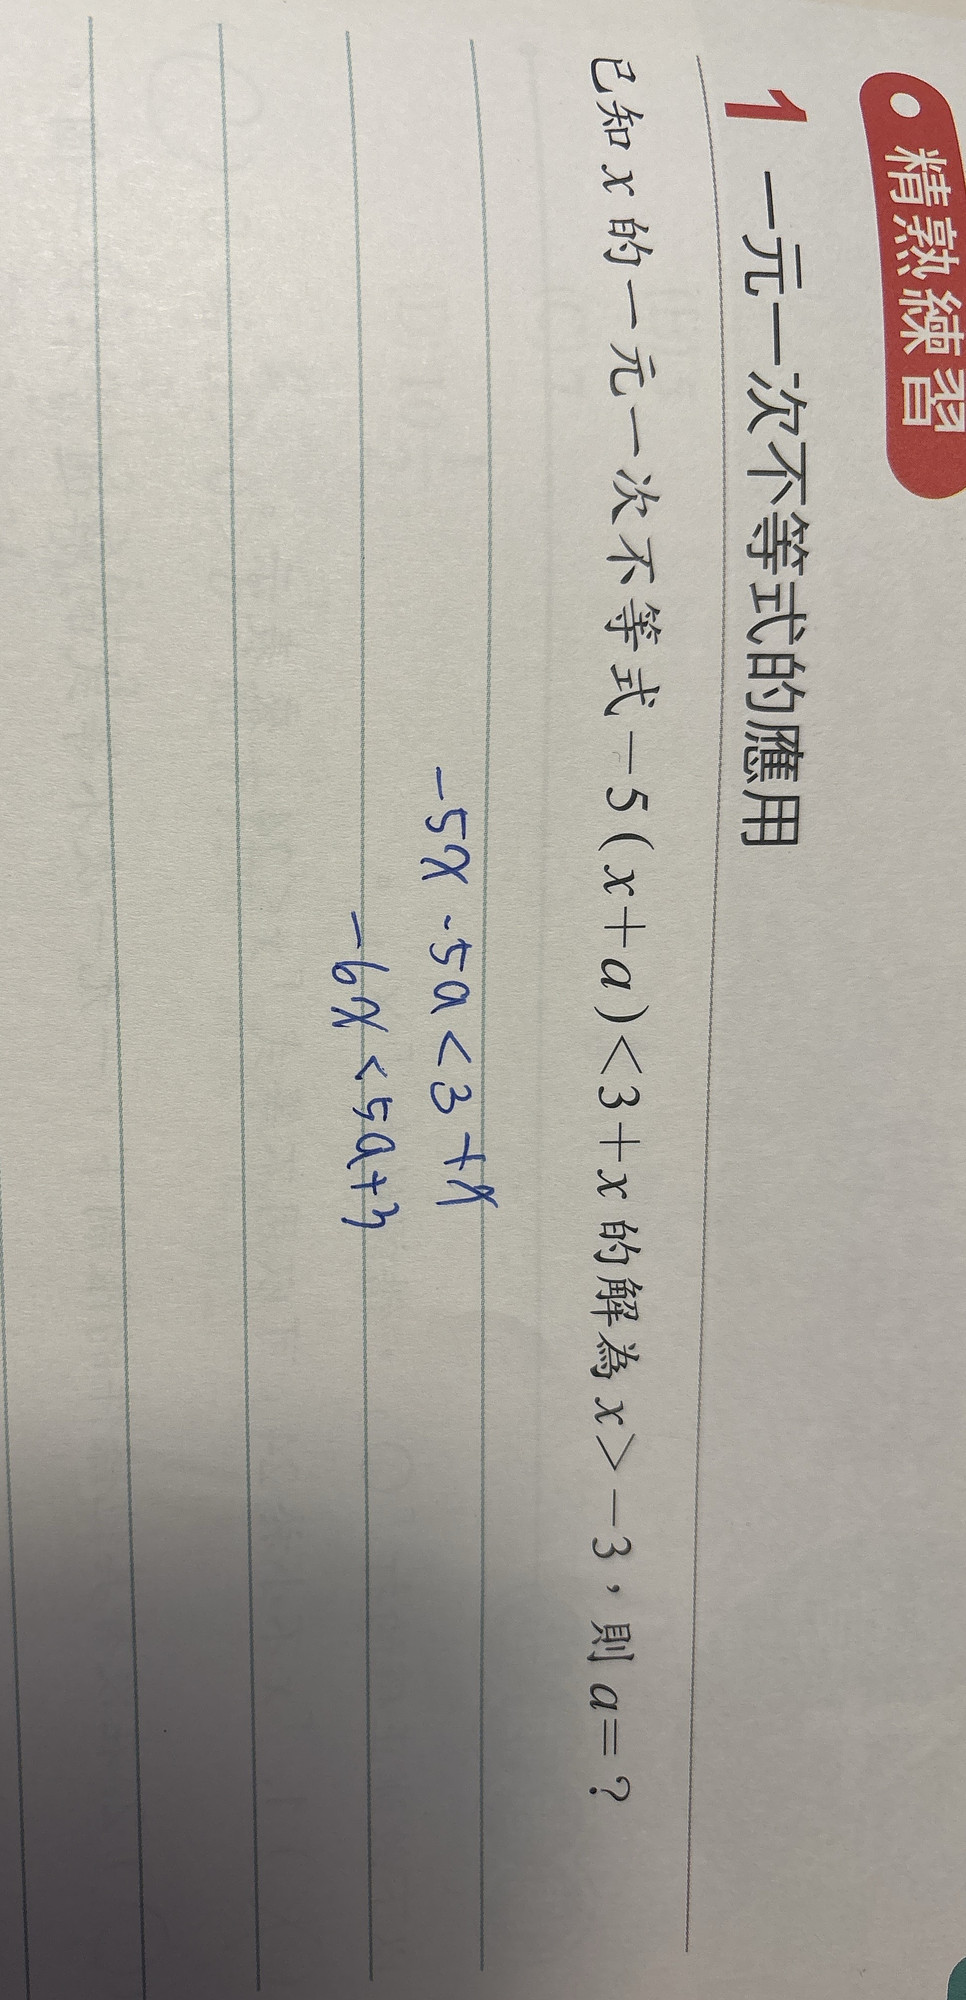 精熟練習
1 一元一次不等式的應用
已知 x 的一元一次不等式 -5(x+a)<3+x 的解為 x>-3,則 a=?
-5x-5a<3+x
-6x<5a+3